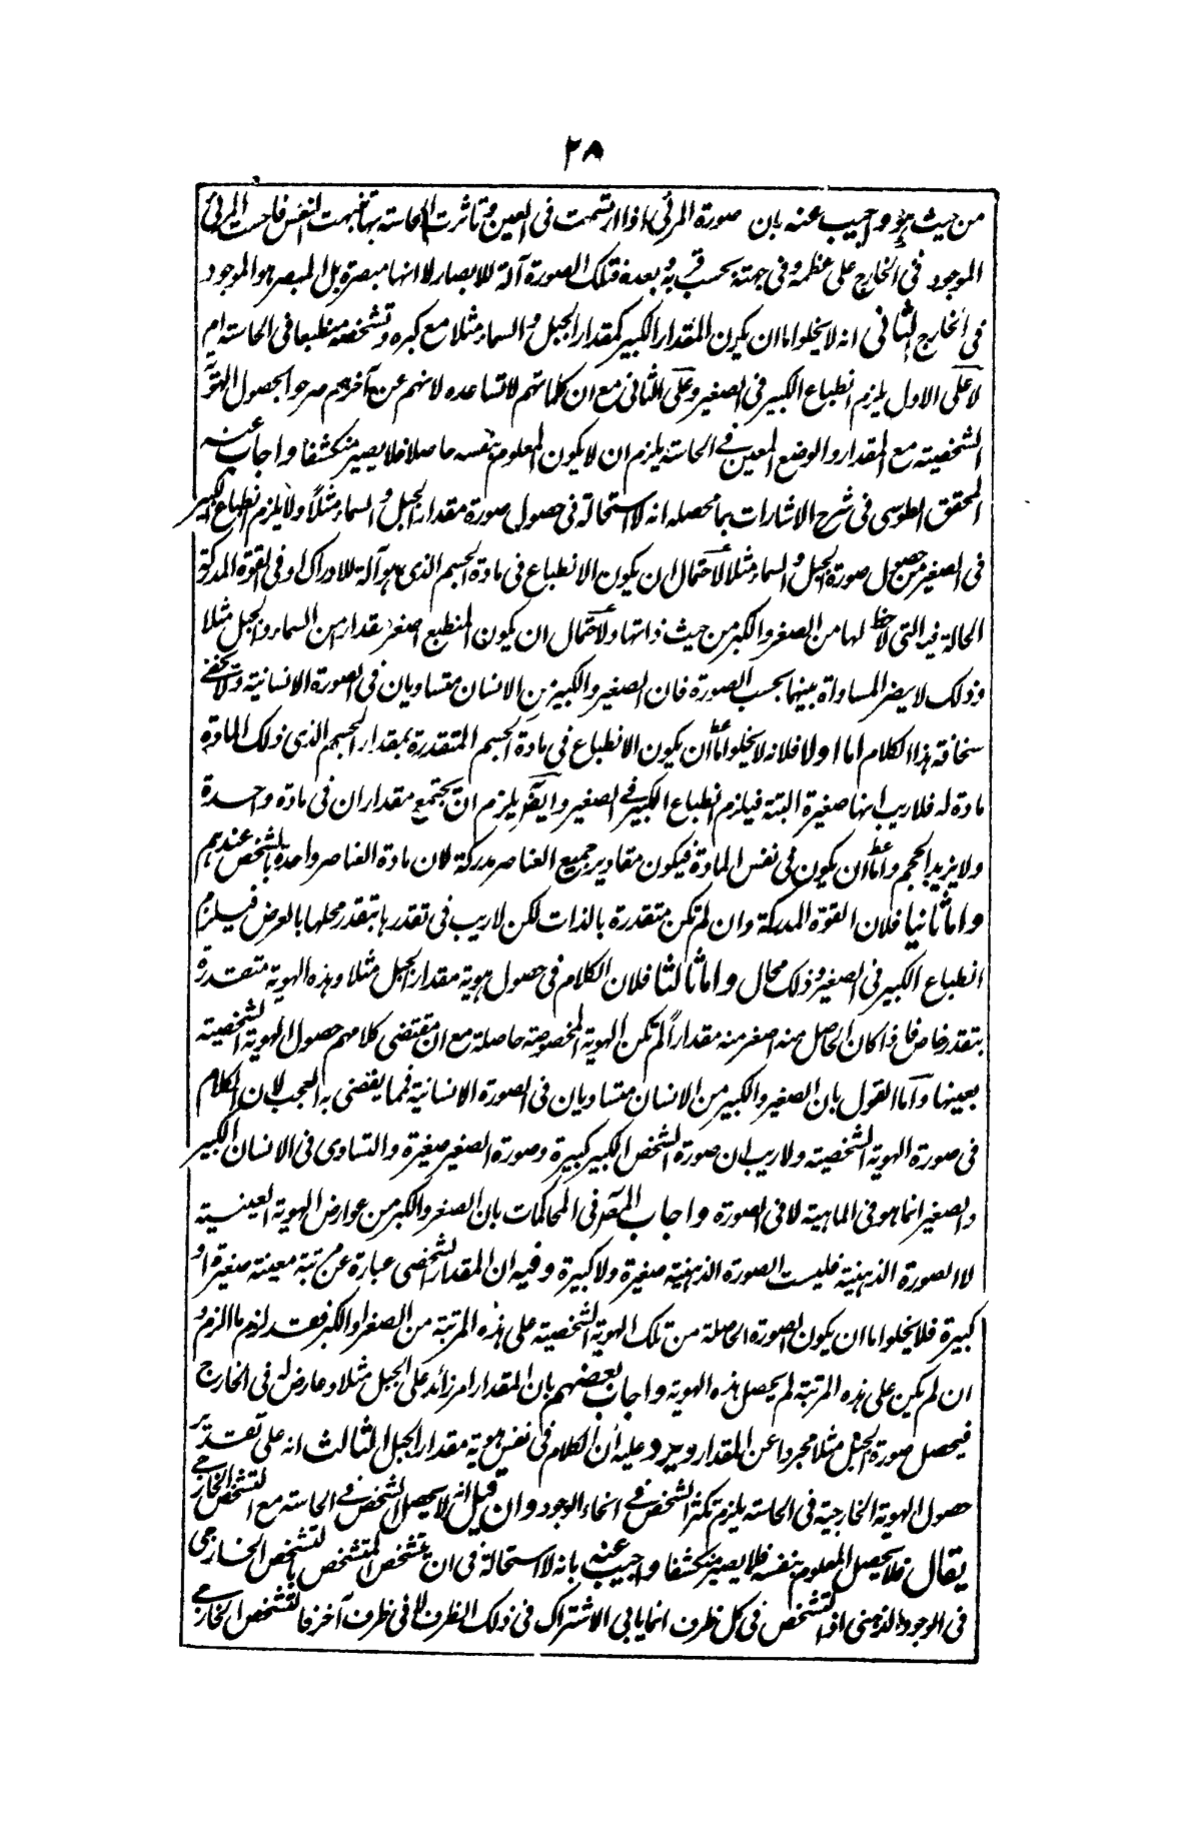 ٢٨
من حيث هو هو واجيب عنه بان صورة المرئي اذا ارتسمت فى العين وتاثرت الحاسة بها تنبهت النفس فاحست المرئي
الموجود فى الخارج على عظمه وفى جهته بحسب قربه وبعده فتلك الصورة آلة للابصار لا انها مبصرة بل المبصر هو الموجود
فى الخارج الثانى انه لا يخلو اما ان يكون المقدار الكبير كمقدار الجبل والسماء مثلا مع كبره وتشخصه منطبعا فى الحاسة ام
لا على الاول يلزم انطباع الكبير فى الصغير وعلى الثانى مع ان كلماتهم لا تساعده لانهم عن آخرهم صرحوا بحصول الهوية
الشخصية مع المقدار والوضع المعين فى الحاسة يلزم ان لا يكون المعلوم بنفسه حاصلا فلا يصير منكشفا واجاب عنه
المحقق الطوسى فى شرح الاشارات بما محصله انه لا استحالة فى حصول صورة مقدار الجبل والسماء مثلاً ولا يلزم انطباع الكبير
فى الصغير من حصول صورة الجبل والسماء مثلا لاحتمال ان يكون الانطباع فى مادة الجسم الذى هو آلة للادراك او فى القوة المدركة
الحالة فيه التى لاحظ لها من الصغر والكبر من حيث ذاتها ولاحتمال ان يكون المنطبع اصغر مقدارا من السماء والجبل مثلا
وذلك لا يضر المساواة بينهما بحسب الصورة فان الصغير والكبير من الانسان متساويان فى الصورة الانسانية ولا يخفى
سخافة هذا الكلام اما اولا فلانه لا يخلو اما ان يكون الانطباع فى مادة الجسم المتقدرة بمقدار الجسم الذى ذلك المادة
مادة له فلا ريب انها صغيرة البتة فيلزم انطباع الكبير فى الصغير وايضا يلزم ان يجتمع مقداران فى مادة واحدة
ولا يزيد الحجم واما ان يكون فى نفس المادة فيكون مقادير جميع العناصر مدركة لان مادة العناصر واحدة بالشخص عندهم
واما ثانيا فلان القوة المدركة وان لم تكن متقدرة بالذات لكن لا ريب فى تقدرها بتقدر محلها بالعرض فيلزم
انطباع الكبير فى الصغير وذلك محال واما ثالثا فلان الكلام فى حصول هوية مقدار الجبل مثلا وهذه الهوية متقدرة
بتقدر خاص فاذا كان الحاصل منه اصغر منه مقداراً لم تكن الهوية المخصوصة حاصلة مع ان مقتضى كلامهم حصول الهوية الشخصية
بعينها واما القول بان الصغير والكبير من الانسان متساويان فى الصورة الانسانية فمما يقضى به العجب لان الكلام
فى صورة الهوية الشخصية ولا ريب ان صورة الشخص الكبير كبيرة وصورة الصغير صغيرة والتساوى فى الانسان الكبير
والصغير انما هو فى الماهية لا فى الصورة واجاب المص فى المحاكمات بان الصغر والكبر من عوارض الهوية العينية
لا الصورة الذهنية فليست الصورة الذهنية صغيرة ولا كبيرة وفيه ان المقدار الشخصى عبارة عن مرتبة معينة صغيرة او
كبيرة فلا يخلو اما ان يكون الصورة الحاصلة من تلك الهوية الشخصية على هذه المرتبة من الصغر او الكبر فقد لزم ما الزم و
ان لم يكن على هذه المرتبة لم يحصل هذه الهوية واجاب بعضهم بان المقدار امر زائد على الجبل مثلا وعارض له فى الخارج
فيحصل صورة الجبل مثلا مجردا عن المقدار ويرد عليه ان الكلام فى نفس هوية مقدار الجبل الثالث انه على تقدير
حصول الهوية الخارجية فى الحاسة يلزم تكثر الشخص فى انحاء الوجود وان قيل انه لا يحصل الشخص فى الحاسة مع التشخص الخارجى
يقال فلا يحصل المعلوم بنفسه فلا يصير منكشفا واجيب عنه بانه لا استحالة فى ان يتشخص المتشخص بالتشخص الخارجى
فى الوجود الذهنى اذ التشخص فى كل ظرف انما يابى الاشتراك فى ذلك الظرف لا فى ظرف آخر فالتشخص الخارجى